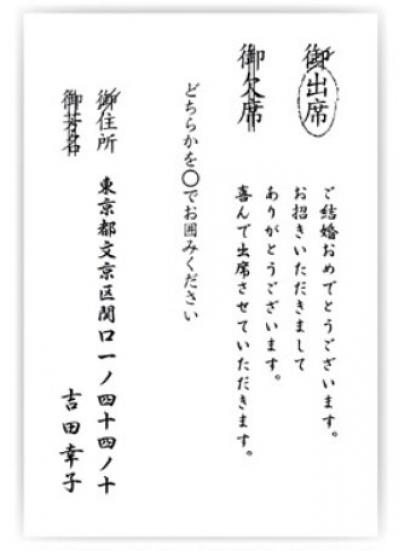 御出席
ご結婚おめでとうございます。
お招きいただきまして
ありがとうございます。
喜んで出席させていただきます。
御欠席
どちらかを○でお囲みください
御住所 東京都文京区関口一ノ四十四ノ十
御芳名 吉田幸子